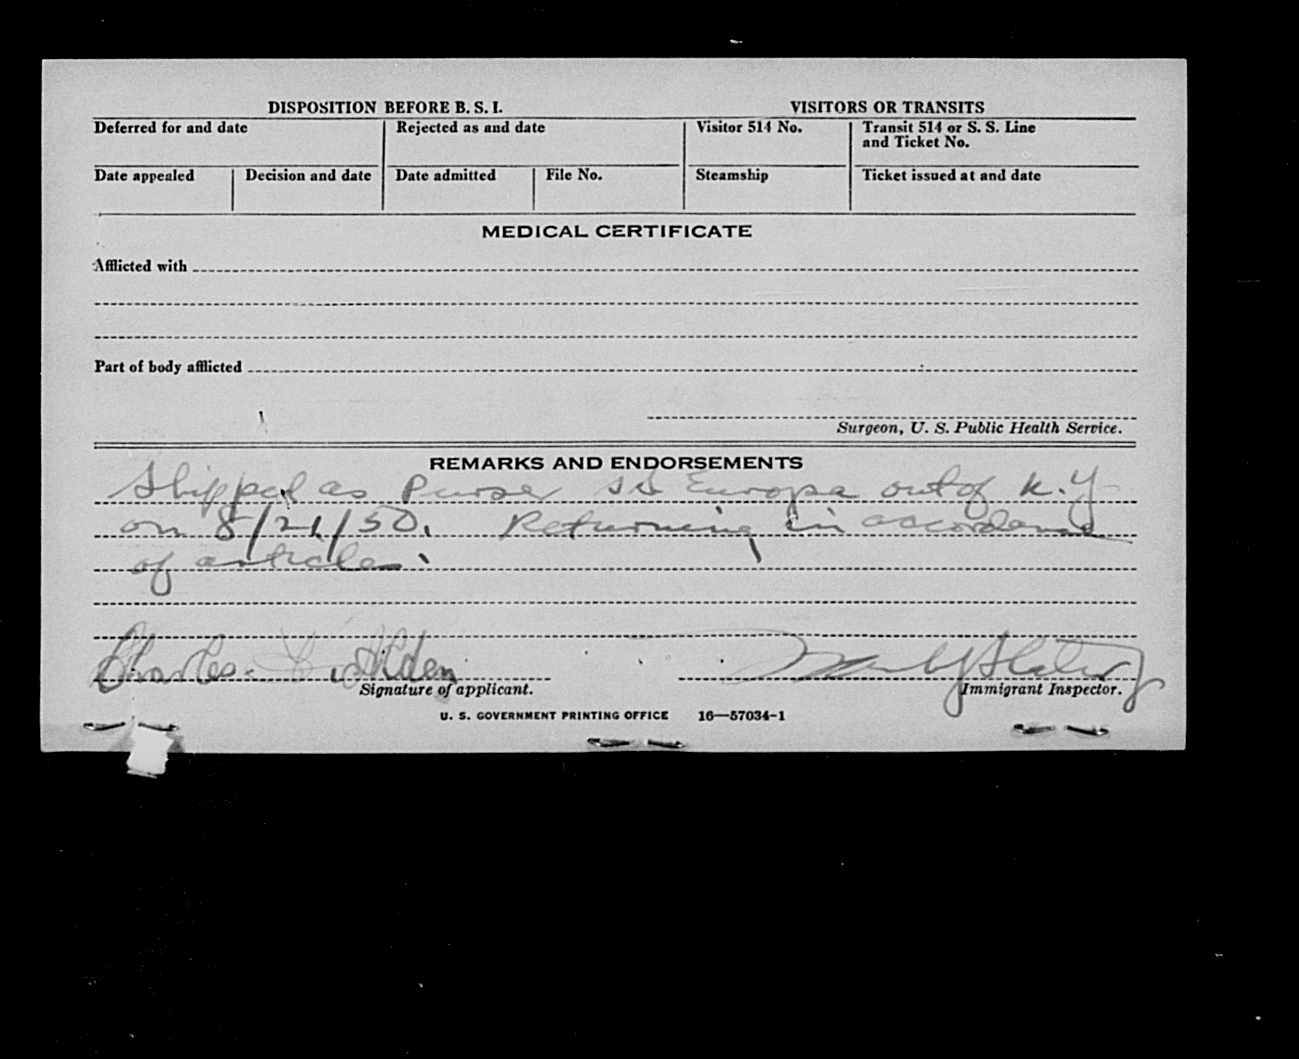 DISPOSITION BEFORE B. S. I.
VISITORS OR TRANSITS
Deferred for and date
Rejected as and date
Visitor 514 No.
Transit 514 or S. S. Line
and Ticket No.
Date appealed
Decision and date
Date admitted
File No.
Steamship
Ticket issued at and date
MEDICAL CERTIFICATE
Afflicted with
Part of body afflicted
Surgeon, U. S. Public Health Service.
REMARKS AND ENDORSEMENTS
Shipped as Purser SS Europa out of N.Y
on 8/21/50. Returning in accordance
of articles.
Charles Alden
Signature of applicant.
Immigrant Inspector.
U. S. GOVERNMENT PRINTING OFFICE 16—57034-1